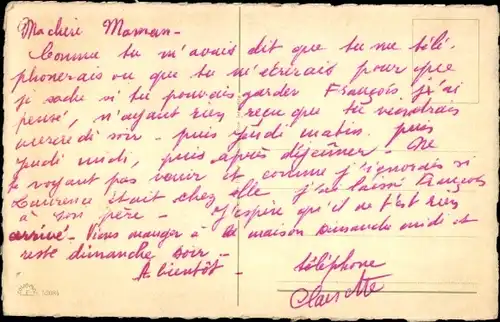 Ma chérie Maman -
Comme tu m'avais dit que tu me télé
phonerais ou que tu m'écrirais pour que
je sache si tu pouvais garder François j'ai
pensé, n'ayant rien reçu que tu viendrais
mercredi soir - puis Jeudi matin. puis
Jeudi midi, puis après déjeûner - Ne
te voyant pas venir et comme j'ignorais si
Laurence était chez elle j'ai laissé François
à son père - J'espère qu'il ne t'est rien
arrivé - Viens manger à la maison Dimanche midi et
reste dimanche soir -
A bientôt -
téléphone
Clairette